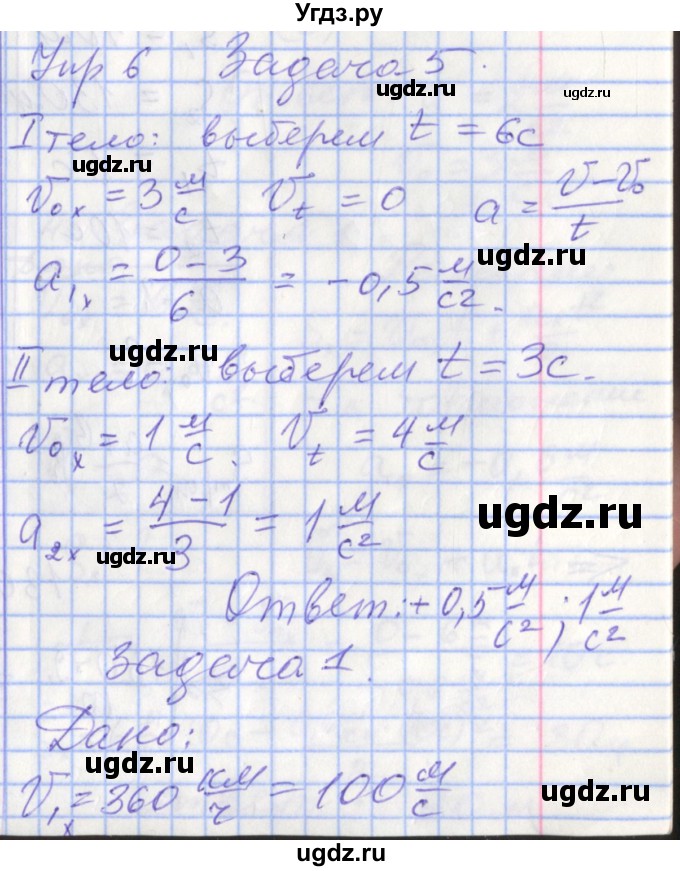 Угдз.ру
Упр 6 Задача 5.
ugdz.ru
ugdz.ru
I тело: выберем t = 6с
ugdz.ru
v₀ₓ = 3 м/с Vₜ = 0 a = (V–V₀)/t
ugdz.ru
a₁ₓ = (0–3)/6 = –0,5 м/с².
ugdz.ru
II тело: выберем t = 3с.
v₀ₓ = 1 м/с. Vₜ = 4 м/с
ugdz.ru
a₂ₓ = (4–1)/3 = 1 м/с²
ugdz.ru
Ответ: + 0,5 м/с²; 1 м/с²
ugdz.ru
Задача 1.
Дано:
ugdz.ru
V₁ₓ = 360 км/ч = 100 м/с
ugdz.ru
ugdz.ru